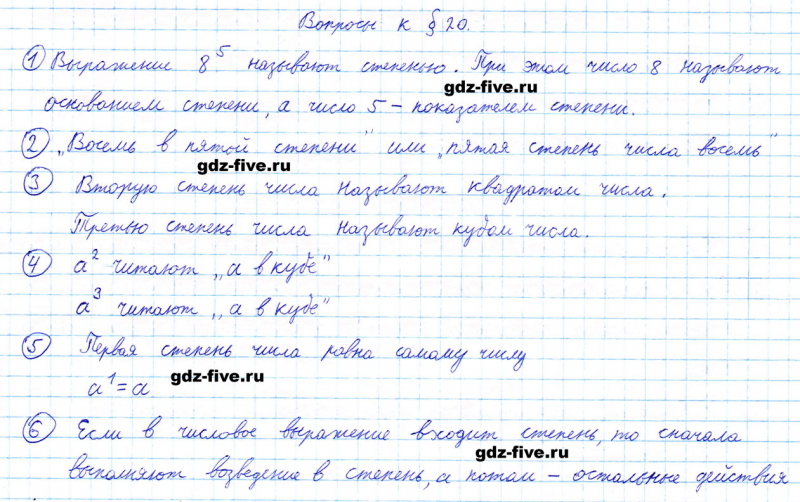 Вопросы к § 20.
① Выражение 8⁵ называют степенью. При этом число 8 называют
gdz-five.ru
основанием степени, а число 5 – показателем степени.
② „Восемь в пятой степени" или „пятая степень числа восемь"
gdz-five.ru
③ Вторую степень числа называют квадратом числа.
Третью степень числа называют кубом числа.
④ a² читают „а в кубе"
a³ читают „а в кубе"
⑤ Первая степень числа равна самому числу
gdz-five.ru
a¹ = a
⑥ Если в числовое выражение входит степень, то сначала
gdz-five.ru
выполняют возведение в степень, а потом – остальные действия